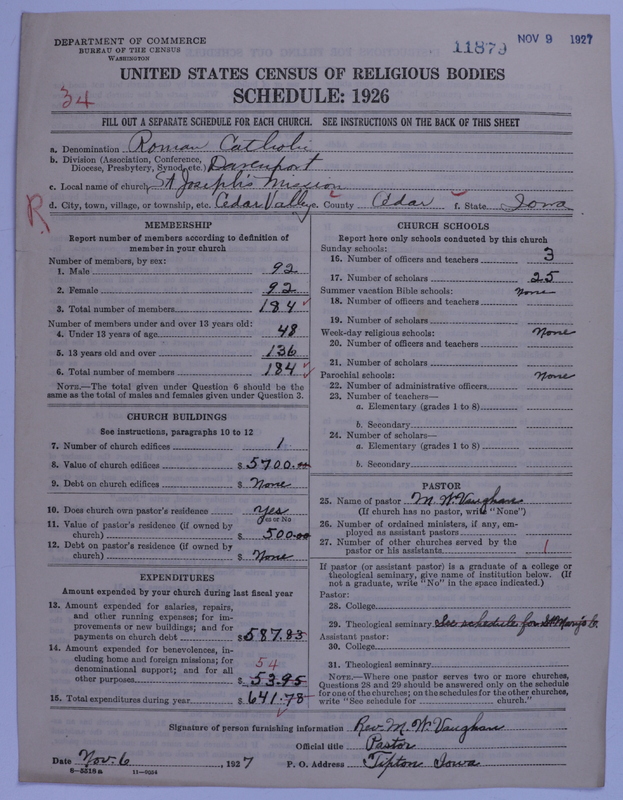 DEPARTMENT OF COMMERCE
BUREAU OF THE CENSUS
WASHINGTON
11879
NOV 9 1927
UNITED STATES CENSUS OF RELIGIOUS BODIES
34
SCHEDULE: 1926
FILL OUT A SEPARATE SCHEDULE FOR EACH CHURCH. SEE INSTRUCTIONS ON THE BACK OF THIS SHEET
a. Denomination Roman Catholic
b. Division (Association, Conference, Diocese, Presbytery, Synod, etc.) Davenport
c. Local name of church St Joseph's Mission
R
d. City, town, village, or township, etc. Cedar Valley e. County Cedar f. State Iowa
MEMBERSHIP
Report number of members according to definition of member in your church
Number of members, by sex:
1. Male 92
2. Female 92
3. Total number of members 184
Number of members under and over 13 years old:
4. Under 13 years of age 48
5. 13 years old and over 136
6. Total number of members 184
NOTE.—The total given under Question 6 should be the same as the total of males and females given under Question 3.
CHURCH BUILDINGS
See instructions, paragraphs 10 to 12
7. Number of church edifices 1
8. Value of church edifices $ 5700.00
9. Debt on church edifices $ None
10. Does church own pastor's residence Yes
Yes or No
11. Value of pastor's residence (if owned by church) $ 500.00
12. Debt on pastor's residence (if owned by church) $ None
EXPENDITURES
Amount expended by your church during last fiscal year
13. Amount expended for salaries, repairs, and other running expenses; for improvements or new buildings; and for payments on church debt $ 587.83
14. Amount expended for benevolences, including home and foreign missions; for denominational support; and for all other purposes $ 53.95
54
15. Total expenditures during year $ 641.78
CHURCH SCHOOLS
Report here only schools conducted by this church
Sunday schools:
16. Number of officers and teachers 3
17. Number of scholars 25
Summer vacation Bible schools: None
18. Number of officers and teachers
19. Number of scholars
Week-day religious schools: None
20. Number of officers and teachers
21. Number of scholars
Parochial schools: None
22. Number of administrative officers
23. Number of teachers—
a. Elementary (grades 1 to 8)
b. Secondary
24. Number of scholars—
a. Elementary (grades 1 to 8)
b. Secondary
PASTOR
25. Name of pastor M. W. Vaughan
(If church has no pastor, write "None")
26. Number of ordained ministers, if any, employed as assistant pastors
27. Number of other churches served by the pastor or his assistants 1
If pastor (or assistant pastor) is a graduate of a college or theological seminary, give name of institution below. (If not a graduate, write "No" in the space indicated.)
Pastor:
28. College
29. Theological seminary See schedule for St Mary's
Assistant pastor:
30. College
31. Theological seminary
NOTE.—Where one pastor serves two or more churches, Question 28 and 29 should be answered only on the schedule for one of the churches; on the schedules for the other churches, write "See schedule for church."
Signature of person furnishing information Rev. M. W. Vaughan
Official title Pastor
Date Nov. 6, 1927 P. O. Address Tipton Iowa
8-5518a 11-9034